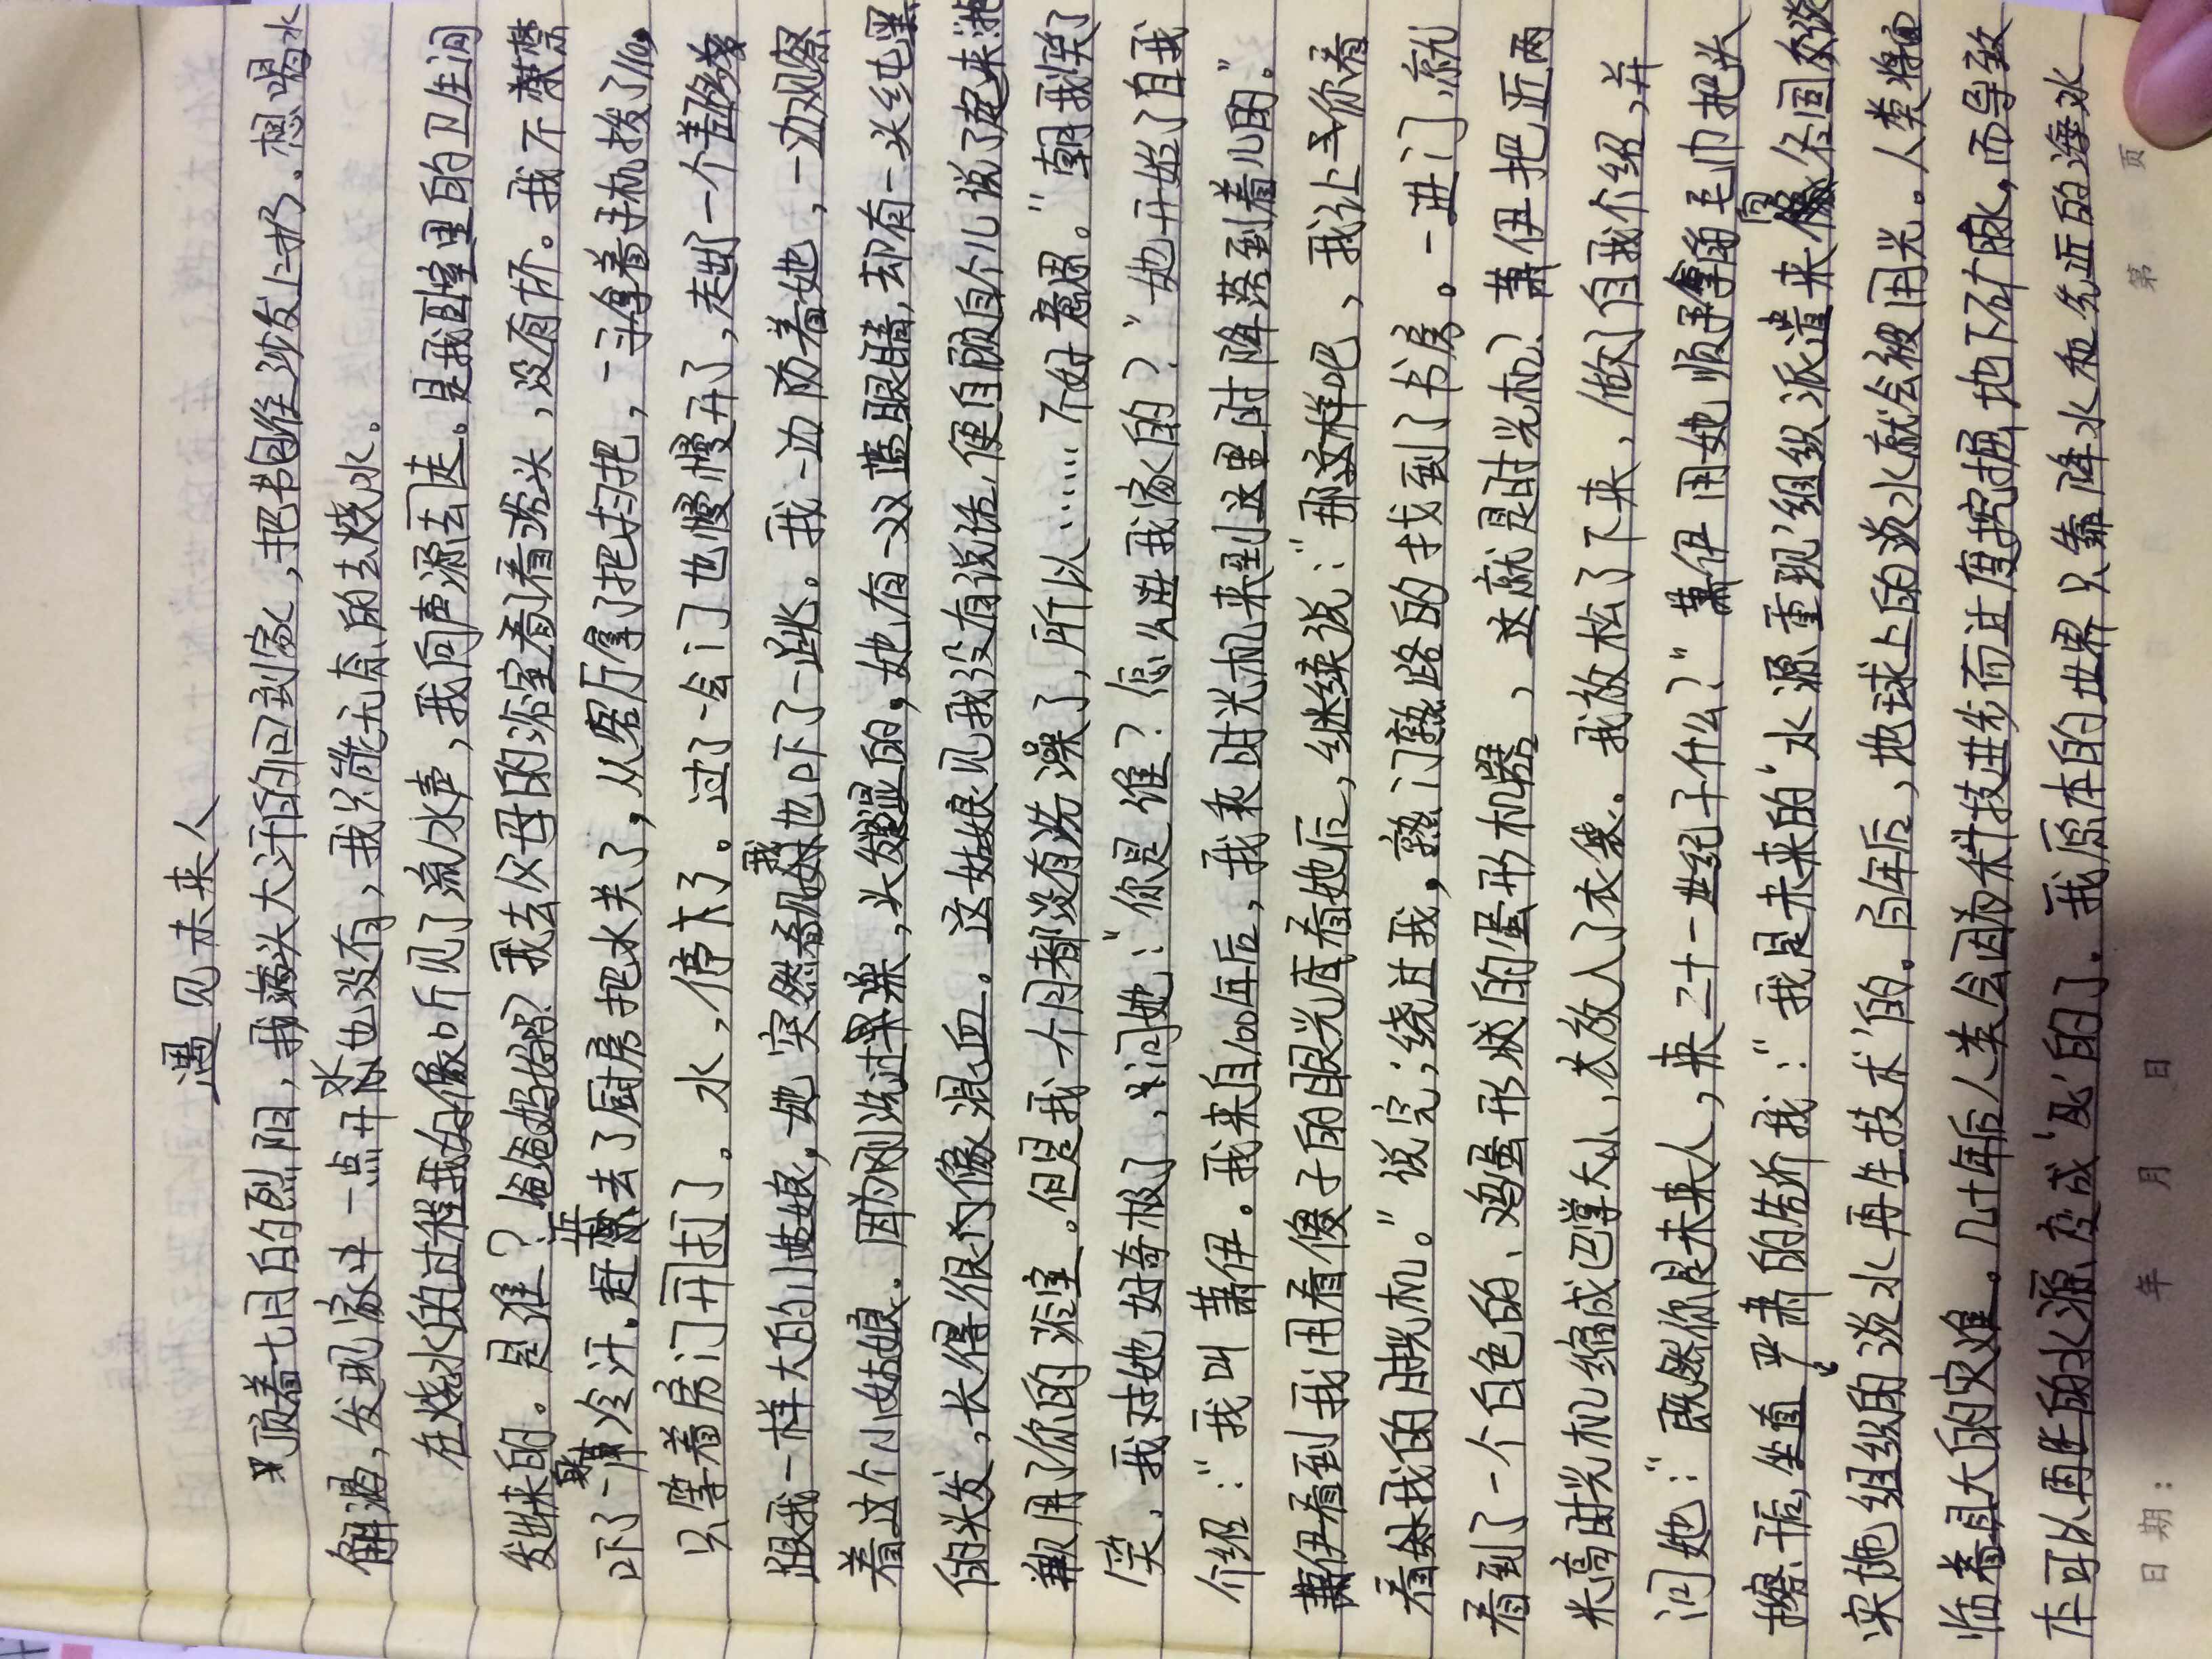 遇见未来人
顶着七月的烈阳，我满头大汗的回到家，把书包往沙发上一扔。想喝水
解渴，发现家中一点开水也没有，我只能无奈的去烧水。
在烧水的过程我好像听见了流水声，我向声源走去。是我卧室里的卫生间
发出来的。是谁？爸爸妈妈？我去父母的浴室看了看水龙头，没有坏。我不禁
吓了一身冷汗。赶紧去了厨房把水关了，从客厅拿了把扫把，一手拿着手机拨了110，
只等着房门开打了。水，停下了。过了一会门也慢慢开了，走出了一个看起来
跟我一样大的小姑娘，她突然看见我也吓了一跳。我一边防着她，一边观察
着这个小姑娘。因为刚洗过澡，头发湿的，她有一双蓝眼睛，却有一头纯黑
的头发，长得很像混血。这姑娘见我没有说话，便自顾自个儿说了起来："抱
歉用了你的浴室。但是我一个月都没有洗澡了，所以……不好意思。"朝我笑了
笑，我对她好奇极了，问她："你是谁？怎么进我家的？"她开始了自我
介绍："我叫萧伊。我来自100年后，我乘时光机来到这里时降落到着儿的。"
萧伊看到我用看傻子的眼光看着她后，继续说："那这样吧，我让你看
看我的时光机。"说完，绕过我，熟门熟路的找到了书房。一进门，就
看到了一个白色的、鸡蛋形状的蛋形机器，这就是时光机？萧伊把近两
米高时光机缩成巴掌大小，放入了衣袋。我放松了下来，做了自我介绍，并
问她："既然你是未来人，来二十一世纪干什么？"萧伊用她顺手拿的毛巾把头
擦干后，坐直严肃的告诉我："我是未来的'水源重现'组织派遣来向各国交谈
实施组织的淡水再生技术的。百年后，地球上的淡水就会被用光。人类将面
临着巨大的灾难。几十年后人类会因为科技进步而过度挖掘地下矿脉，而导致
本可以再生的水源变成'死'的了。我原本的世界只靠降水和先近的海水
日期： 年 月 日 第 页